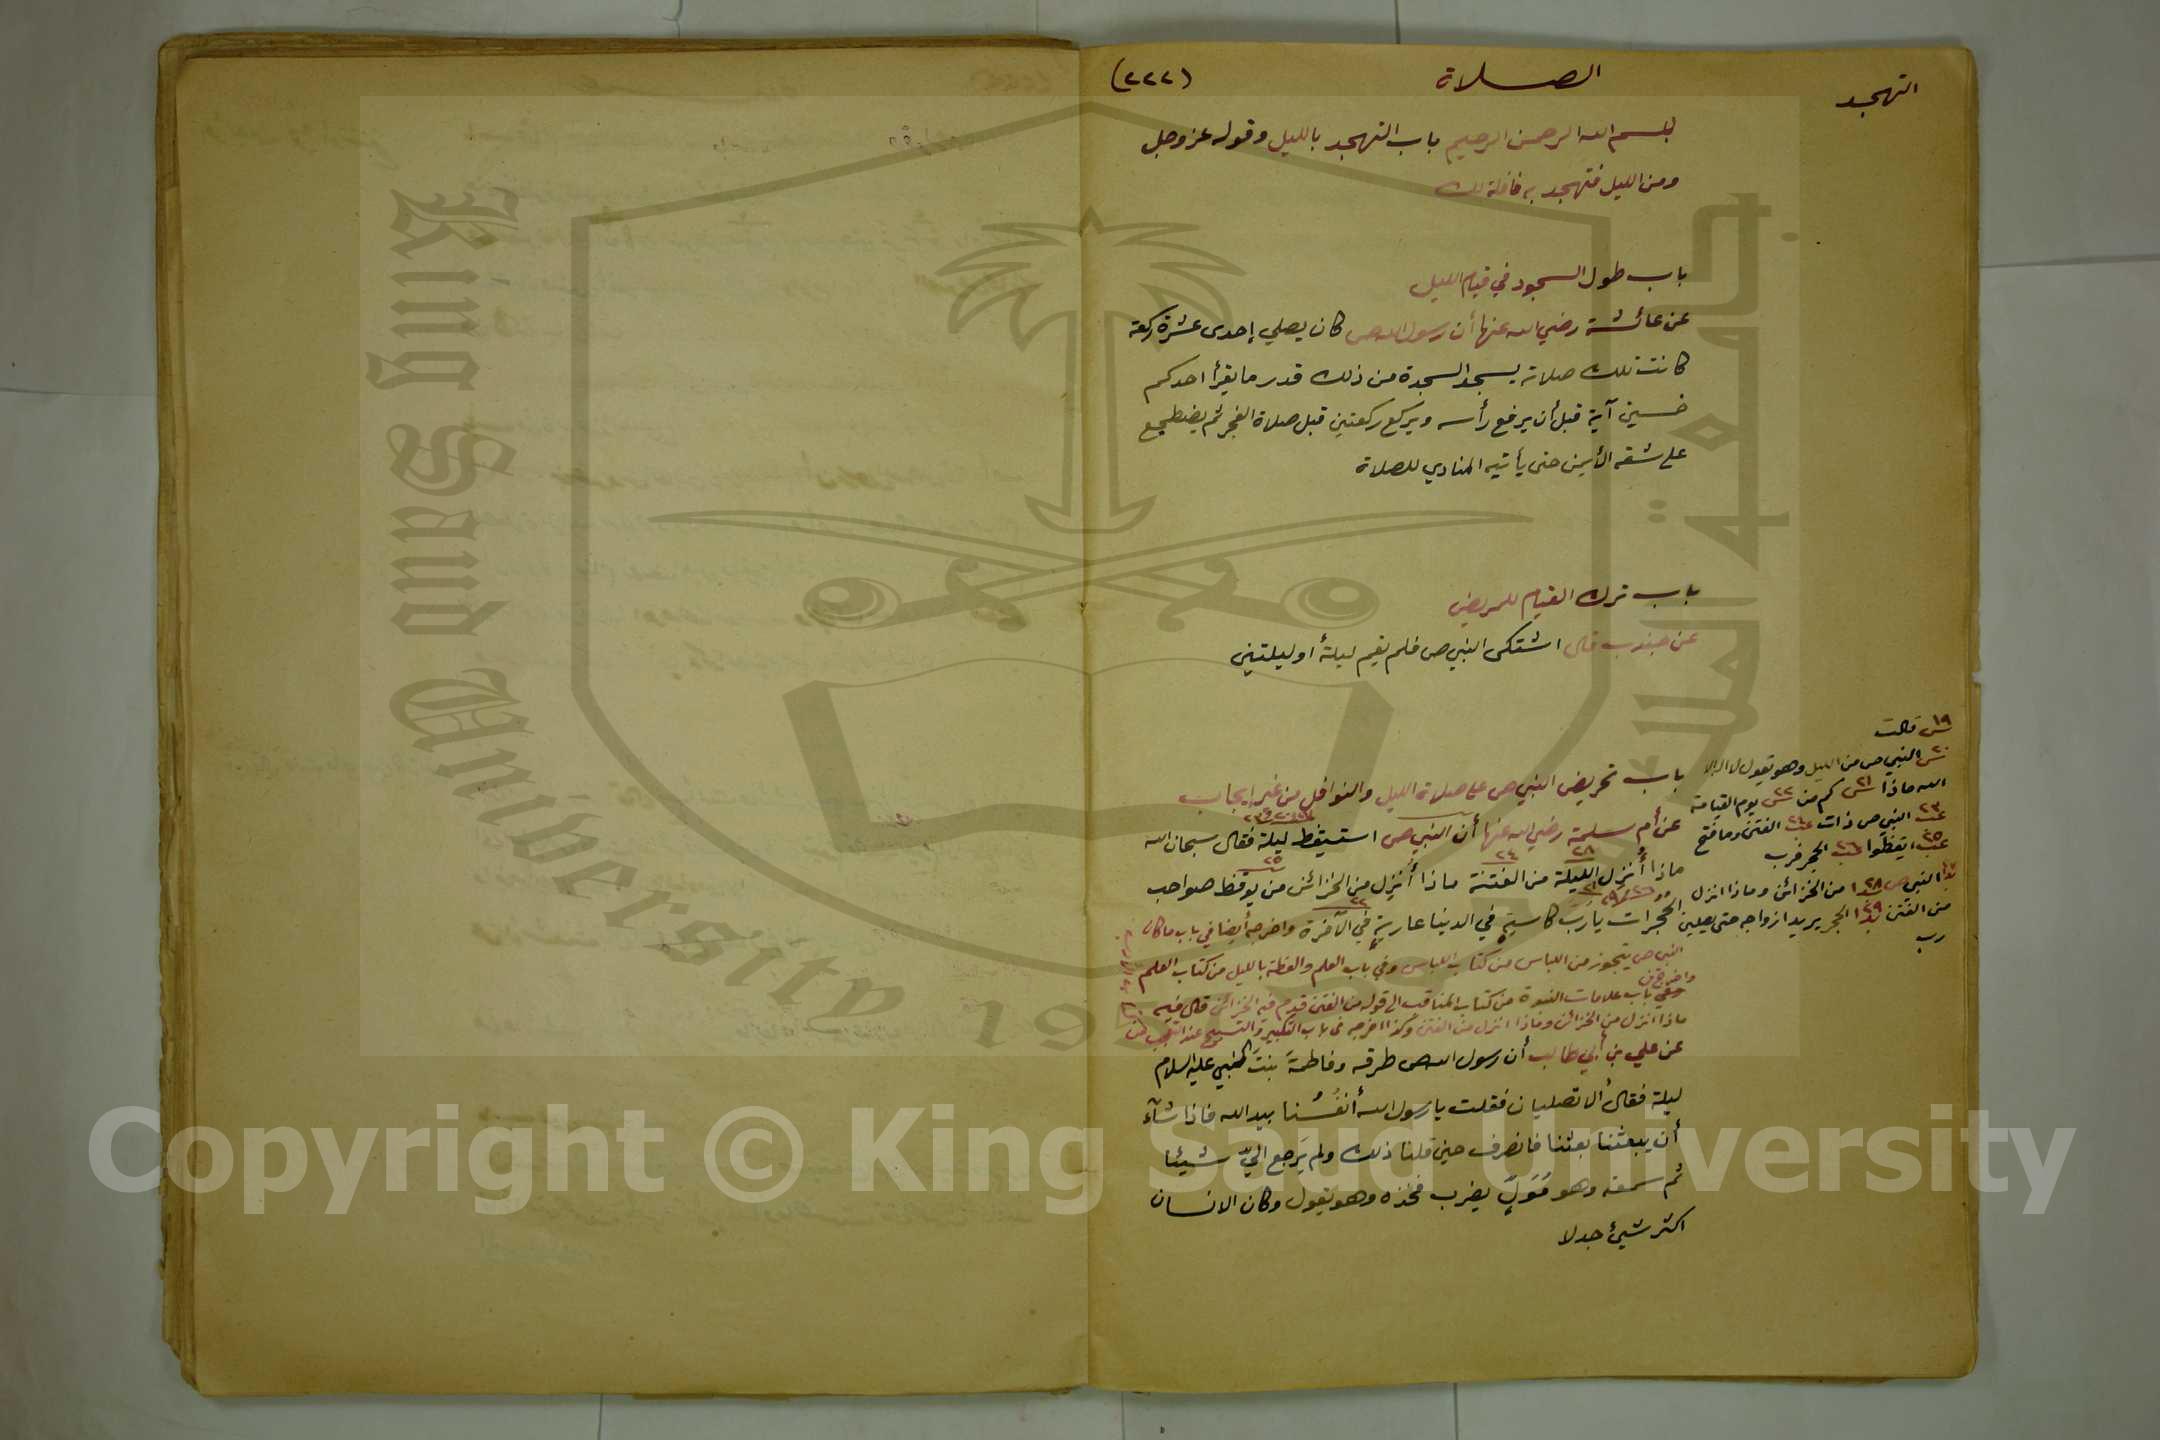 التهجد
الصلاة
(٢٢٢)
بسم الله الرحمن الرحيم باب التهجد بالليل وقوله عز وجل
ومن الليل فتهجد به نافلة لك
باب طول السجود في قيام الليل
عن عائشة رضي الله عنها أن رسول الله ص كان يصلي إحدى عشرة ركعة
كانت تلك صلاته يسجد السجدة من ذلك قدر ما يقرأ احدكم
خمسين آية قبل أن يرفع رأسه ويركع ركعتين قبل صلاة الفجر ثم يضطجع
على شقه الأيمن حتى يأتيه المنادي للصلاة
باب ترك القيام للمريض
عن جندب قال اشتكى النبي ص فلم يقم ليلة أو ليلتين
باب تحريض النبي ص على صلاة الليل والنوافل من غير إيجاب
عن أم سلمة رضي الله عنها أن النبي ص استيقظ ليلة فقال سبحان الله
ماذا أُنزِل الليلة من الفتنة ماذا أُنزِل من الخزائن من يوقظ صواحب
الحجرات يا رب كاسيةٍ في الدنيا عاريةٍ في الآخرة واخرجه أيضا في باب ما كان
النبي ص يتجوز من اللباس من كتاب اللباس وفي باب العلم والعظة بالليل من كتاب العلم
وفي باب علامات النبوة من كتاب المناقب الى قوله من الفتن قدم فيه الخزائن قال فيه
ماذا انزل من الخزائن وماذا انزل من الفتن وكذا اخرجه في باب التكبير والتسبيح عند التعجب
عن علي بن أبي طالب أن رسول الله ص طرقه وفاطمةَ بنتَ النبي عليه السلام
ليلة فقال ألا تصليان فقلت يا رسول الله أنفُسُنا بيد الله فاذا شآء
أن يبعثنا بعثنا فانصرف حين قلنا ذلك ولم يَرجع اليّ شيئا
ثم سمعته وهو مُوَلٍّ يضرب فخذه وهو يقول وكان الانسان
اكثر شيئ جدلا
١٩ قالت
٢٠ النبي ص من الليل وهو يقول لا اله الا
الله ماذا ٢١ كم من ٢٢ يوم القيامة
٢٣ النبي ص ذات ٢٤ الفتن وما فتح
٢٥ ايقظوا ٢٦ الحجر فرب
٢٧ النبي ص ٢٨ من الخزائن وماذا انزل
من الفتن ٢٩ الحجر يريد ازواجه حتى يصلين
رب
King Saud University
جامعة الملك سعود
Copyright © King Saud University